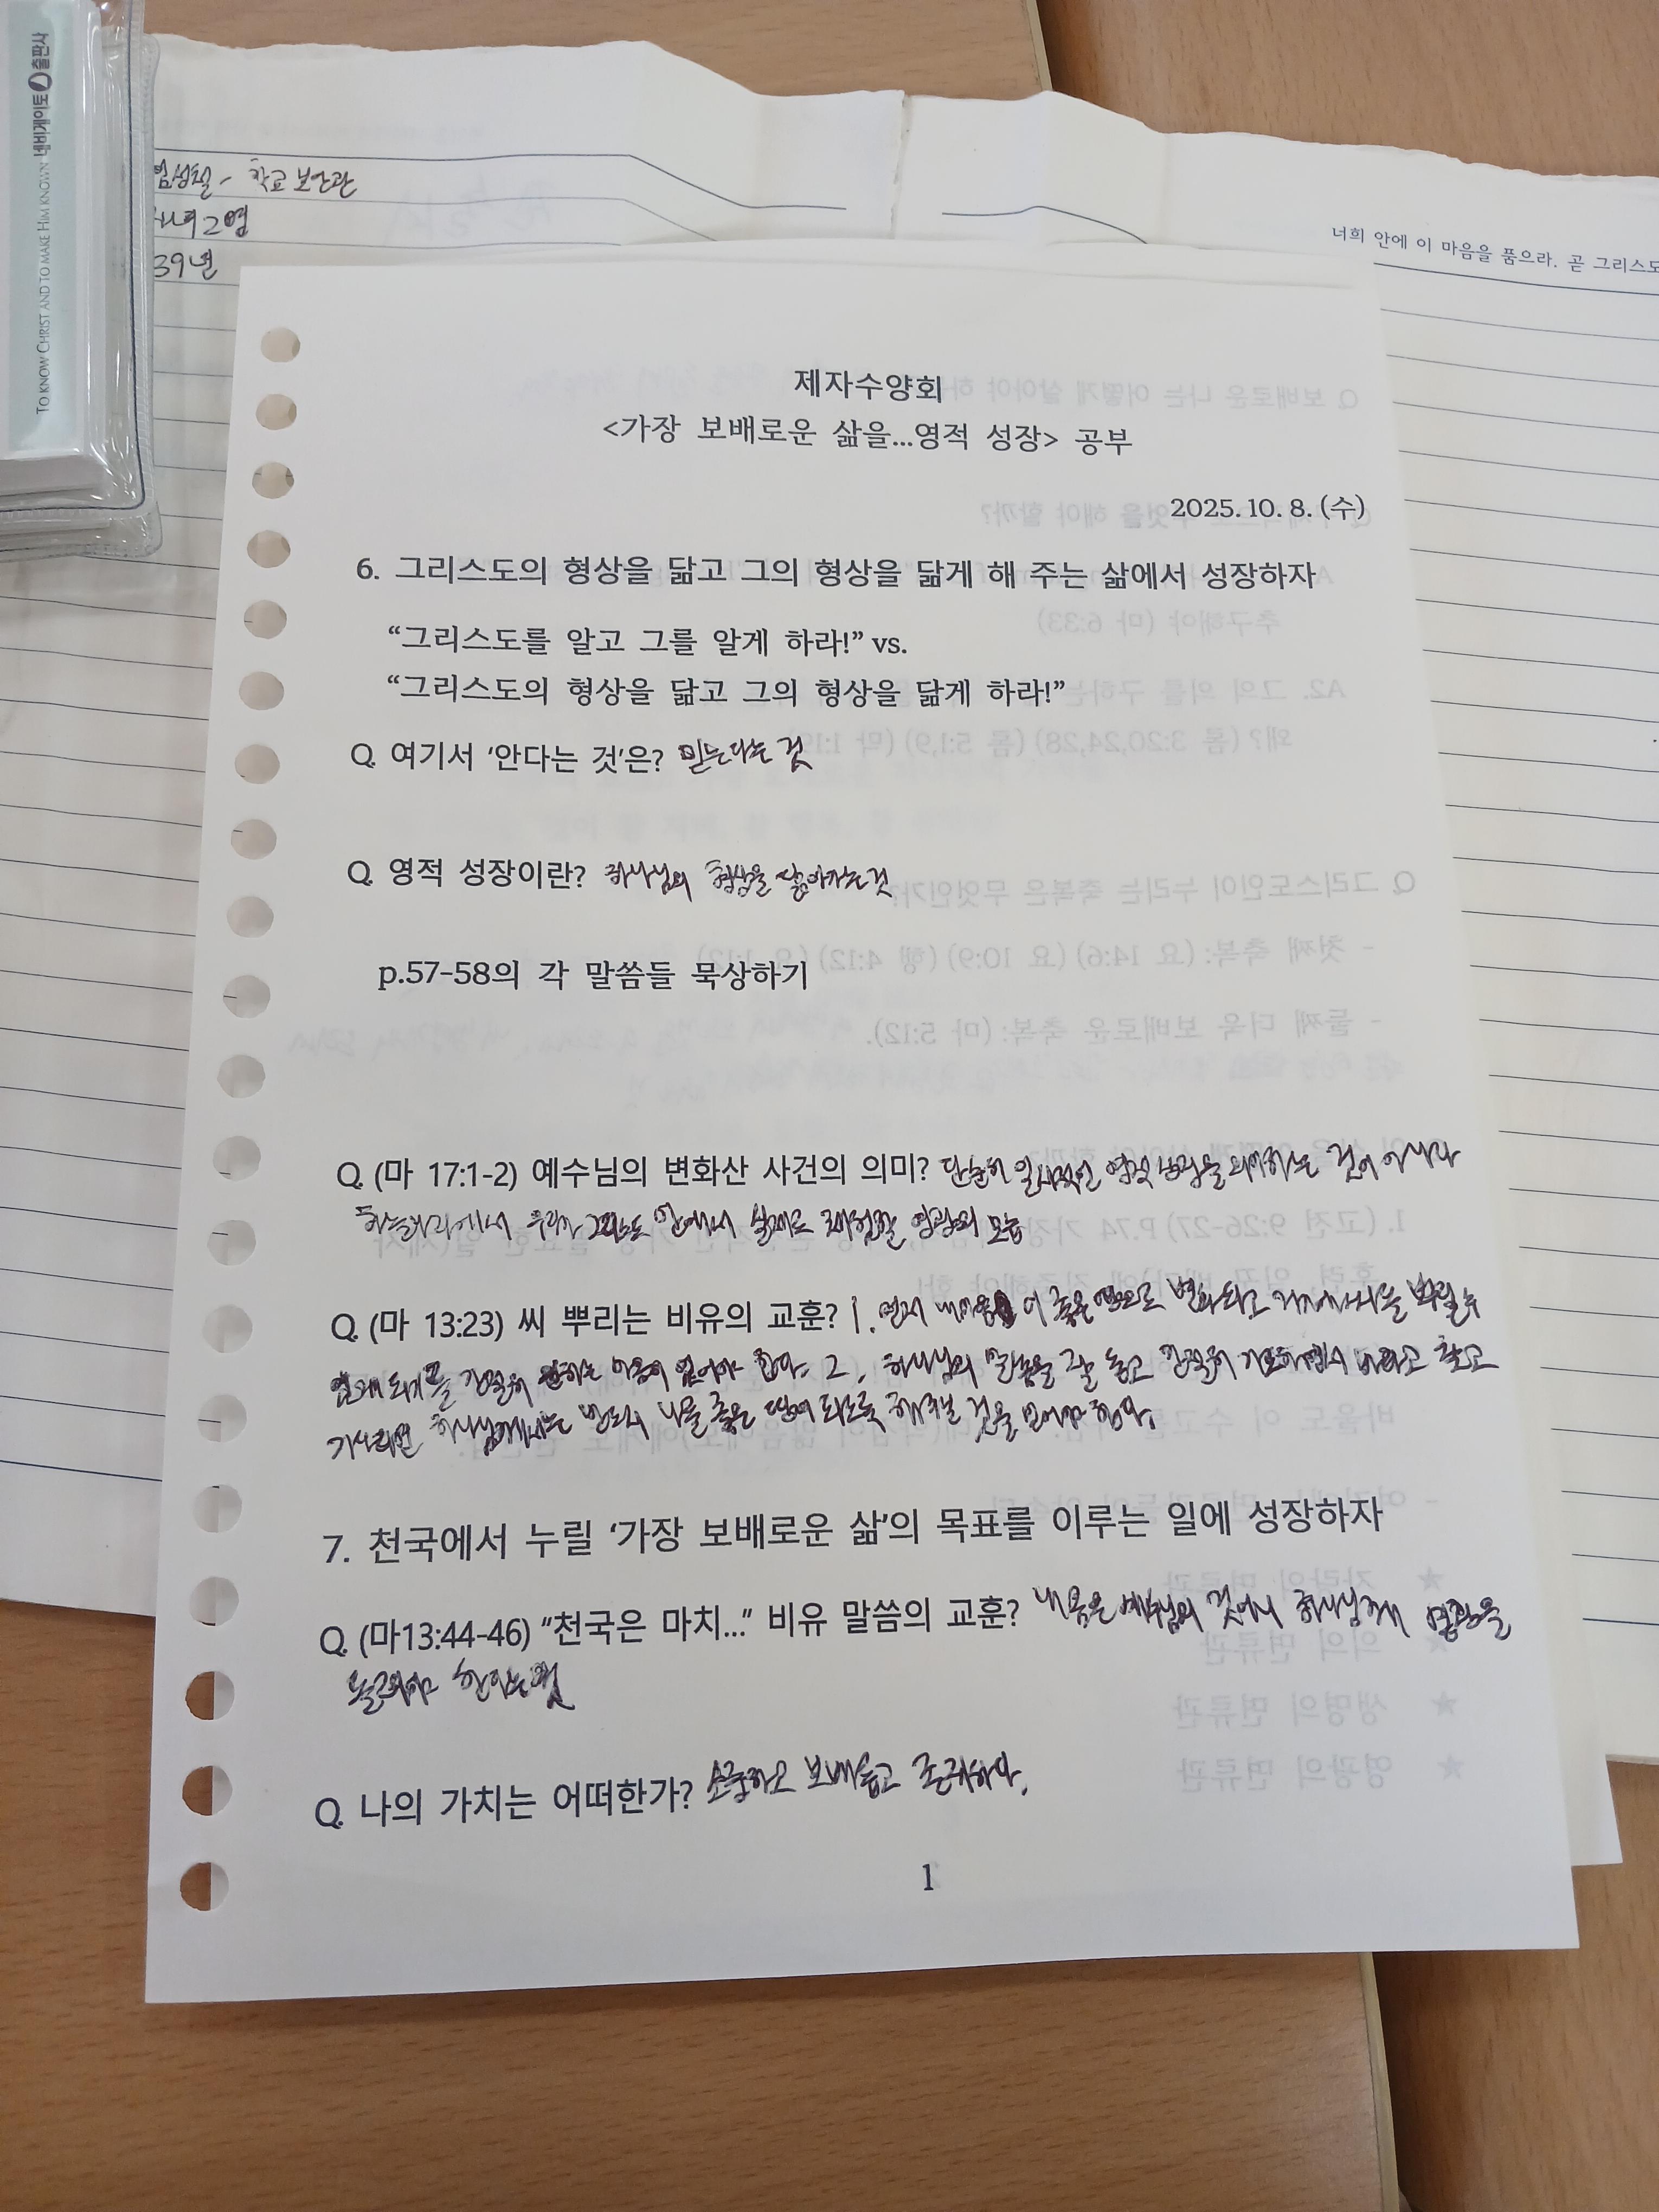 네비게이토 출판사
TO KNOW CHRIST AND TO MAKE HIM KNOWN
엄성철 - 학교 보안관
자녀 2명
39년
너희 안에 이 마음을 품으라. 곧 그리스도
제자수양회
<가장 보배로운 삶을...영적 성장> 공부
2025. 10. 8. (수)
6. 그리스도의 형상을 닮고 그의 형상을 닮게 해 주는 삶에서 성장하자
“그리스도를 알고 그를 알게 하라!” vs.
“그리스도의 형상을 닮고 그의 형상을 닮게 하라!”
Q. 여기서 ‘안다는 것’은? 믿는다는 것
Q. 영적 성장이란? 하나님의 형상을 닮아가는것
p.57-58의 각 말씀들 묵상하기
Q. (마 17:1-2) 예수님의 변화산 사건의 의미? 단순히 일시적인 영적 성장을 의미하는 것이 아니라
하늘나라에서 우리가 그리스도 안에서 실제로 체험할 영광의 모습
Q. (마 13:23) 씨 뿌리는 비유의 교훈? 1. 먼저 내마음이 좋은 땅으로 변화되고 거기에 씨를 뿌릴 수
있게 되기를 간절히 원하는 마음이 있어야 한다. 2. 하나님의 말씀을 잘 듣고 간절히 기도하면서 바라고 찾고
기다리면 하나님께서는 반드시 나를 좋은 땅이 되도록 해주실 것을 믿어야 한다.
7. 천국에서 누릴 ‘가장 보배로운 삶’의 목표를 이루는 일에 성장하자
Q. (마13:44-46) “천국은 마치...” 비유 말씀의 교훈? 내 몸은 예수님의 것이니 하나님께 영광을
돌려야 한다는 것
Q. 나의 가치는 어떠한가? 소중하고 보배롭고 존귀하다.
1